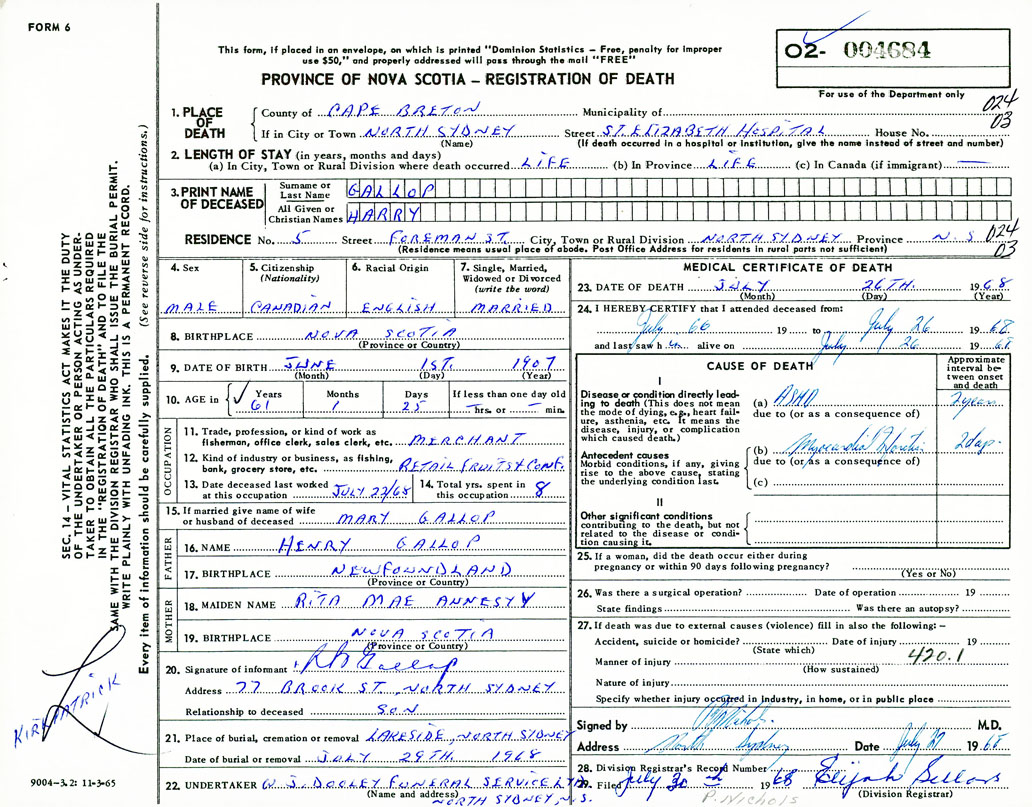 FORM 6
This form, if placed in an envelope, on which is printed "Dominion Statistics – Free, penalty for improper
use $50," and properly addressed will pass through the mail "FREE"
PROVINCE OF NOVA SCOTIA – REGISTRATION OF DEATH
02- 004684
For use of the Department only
024
03
1. PLACE OF DEATH
County of CAPE BRETON Municipality of
If in City or Town NORTH SYDNEY Street ST. ELIZABETH HOSPITAL House No.
(Name) (If death occurred in a hospital or institution, give the name instead of street and number)
2. LENGTH OF STAY (in years, months and days)
(a) In City, Town or Rural Division where death occurred LIFE (b) In Province LIFE (c) In Canada (if immigrant) —
3. PRINT NAME OF DECEASED
Surname or Last Name GALLOP
All Given or Christian Names HARRY
RESIDENCE No. 5 Street FOREMAN ST. City, Town or Rural Division NORTH SYDNEY Province N.S
(Residence means usual place of abode. Post Office Address for residents in rural parts not sufficient)
024
03
4. Sex
MALE
5. Citizenship
(Nationality)
CANADIAN
6. Racial Origin
ENGLISH
7. Single, Married,
Widowed or Divorced
(write the word)
MARRIED
8. BIRTHPLACE NOVA SCOTIA
(Province or Country)
9. DATE OF BIRTH JUNE 1ST. 1907
(Month) (Day) (Year)
10. AGE in Years Months Days If less than one day old
61 1 25 — hrs. or — min.
OCCUPATION
11. Trade, profession, or kind of work as
fisherman, office clerk, sales clerk, etc. MERCHANT
12. Kind of industry or business, as fishing,
bank, grocery store, etc. RETAIL FRUITS & CONF.
13. Date deceased last worked
at this occupation JULY 22/68
14. Total yrs. spent in
this occupation 8
15. If married give name of wife
or husband of deceased MARY GALLOP
FATHER
16. NAME HENRY GALLOP
17. BIRTHPLACE NEWFOUNDLAND
(Province or Country)
MOTHER
18. MAIDEN NAME RITA MAE ANNESY
19. BIRTHPLACE NOVA SCOTIA
(Province or Country)
20. Signature of informant Gallop
Address 77 BROOK ST., NORTH SYDNEY
Relationship to deceased SON
21. Place of burial, cremation or removal LAKESIDE, NORTH SYDNEY
Date of burial or removal JULY 29TH. 1968
22. UNDERTAKER W. J. DOOLEY FUNERAL SERVICE LTD
(Name and address)
NORTH SYDNEY, N.S.
MEDICAL CERTIFICATE OF DEATH
23. DATE OF DEATH JULY 26TH. 1968
(Month) (Day) (Year)
24. I HEREBY CERTIFY that I attended deceased from:
July 66 19 to July 26 1968
and last saw him alive on July 26 1968
CAUSE OF DEATH
Approximate
interval be-
tween onset
and death
I
Disease or condition directly lead-
ing to death (This does not mean
the mode of dying, e.g., heart fail-
ure, asthenia, etc. It means the
disease, injury, or complication
which caused death.)
(a) ASHD 2 years
due to (or as a consequence of)
Antecedent causes
Morbid conditions, if any, giving
rise to the above cause, stating
the underlying condition last.
(b) Myocardial Infarction 2 days
due to (or as a consequence of)
(c)
II
Other significant conditions
contributing to the death, but not
related to the disease or condi-
tion causing it.
25. If a woman, did the death occur either during
pregnancy or within 90 days following pregnancy?
(Yes or No)
26. Was there a surgical operation? Date of operation 19
State findings Was there an autopsy?
27. If death was due to external causes (violence) fill in also the following:–
Accident, suicide or homicide? Date of injury 19
(State which)
Manner of injury 420.1
(How sustained)
Nature of injury
Specify whether injury occurred in industry, in home, or in public place
Signed by Nichols M.D.
Address North Sydney Date July 27 1968
28. Division Registrar's Record Number
29. Filed July 30 1968 Elijah Sellars
(Division Registrar)
P. NICHOLS
SEC. 14 – VITAL STATISTICS ACT MAKES IT THE DUTY
OF THE UNDERTAKER OR PERSON ACTING AS UNDER-
TAKER TO OBTAIN ALL THE PARTICULARS REQUIRED
IN THE "REGISTRATION OF DEATH" AND TO FILE THE
SAME WITH THE DIVISION REGISTRAR WHO SHALL ISSUE THE BURIAL PERMIT.
WRITE PLAINLY WITH UNFADING INK. THIS IS A PERMANENT RECORD.
Every item of information should be carefully supplied. (See reverse side for instructions.)
KIRKPATRICK
9004-3.2: 11-3-65